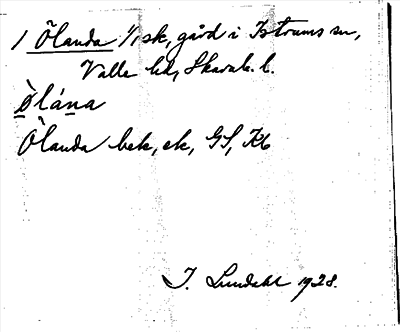 1 Ölanda 1/1 sk, gård i Istrums sn,
Valle hd, Skarab. l.
Òlána
Ölanda bek, ek, GS, Kb
I. Lundahl 1928.